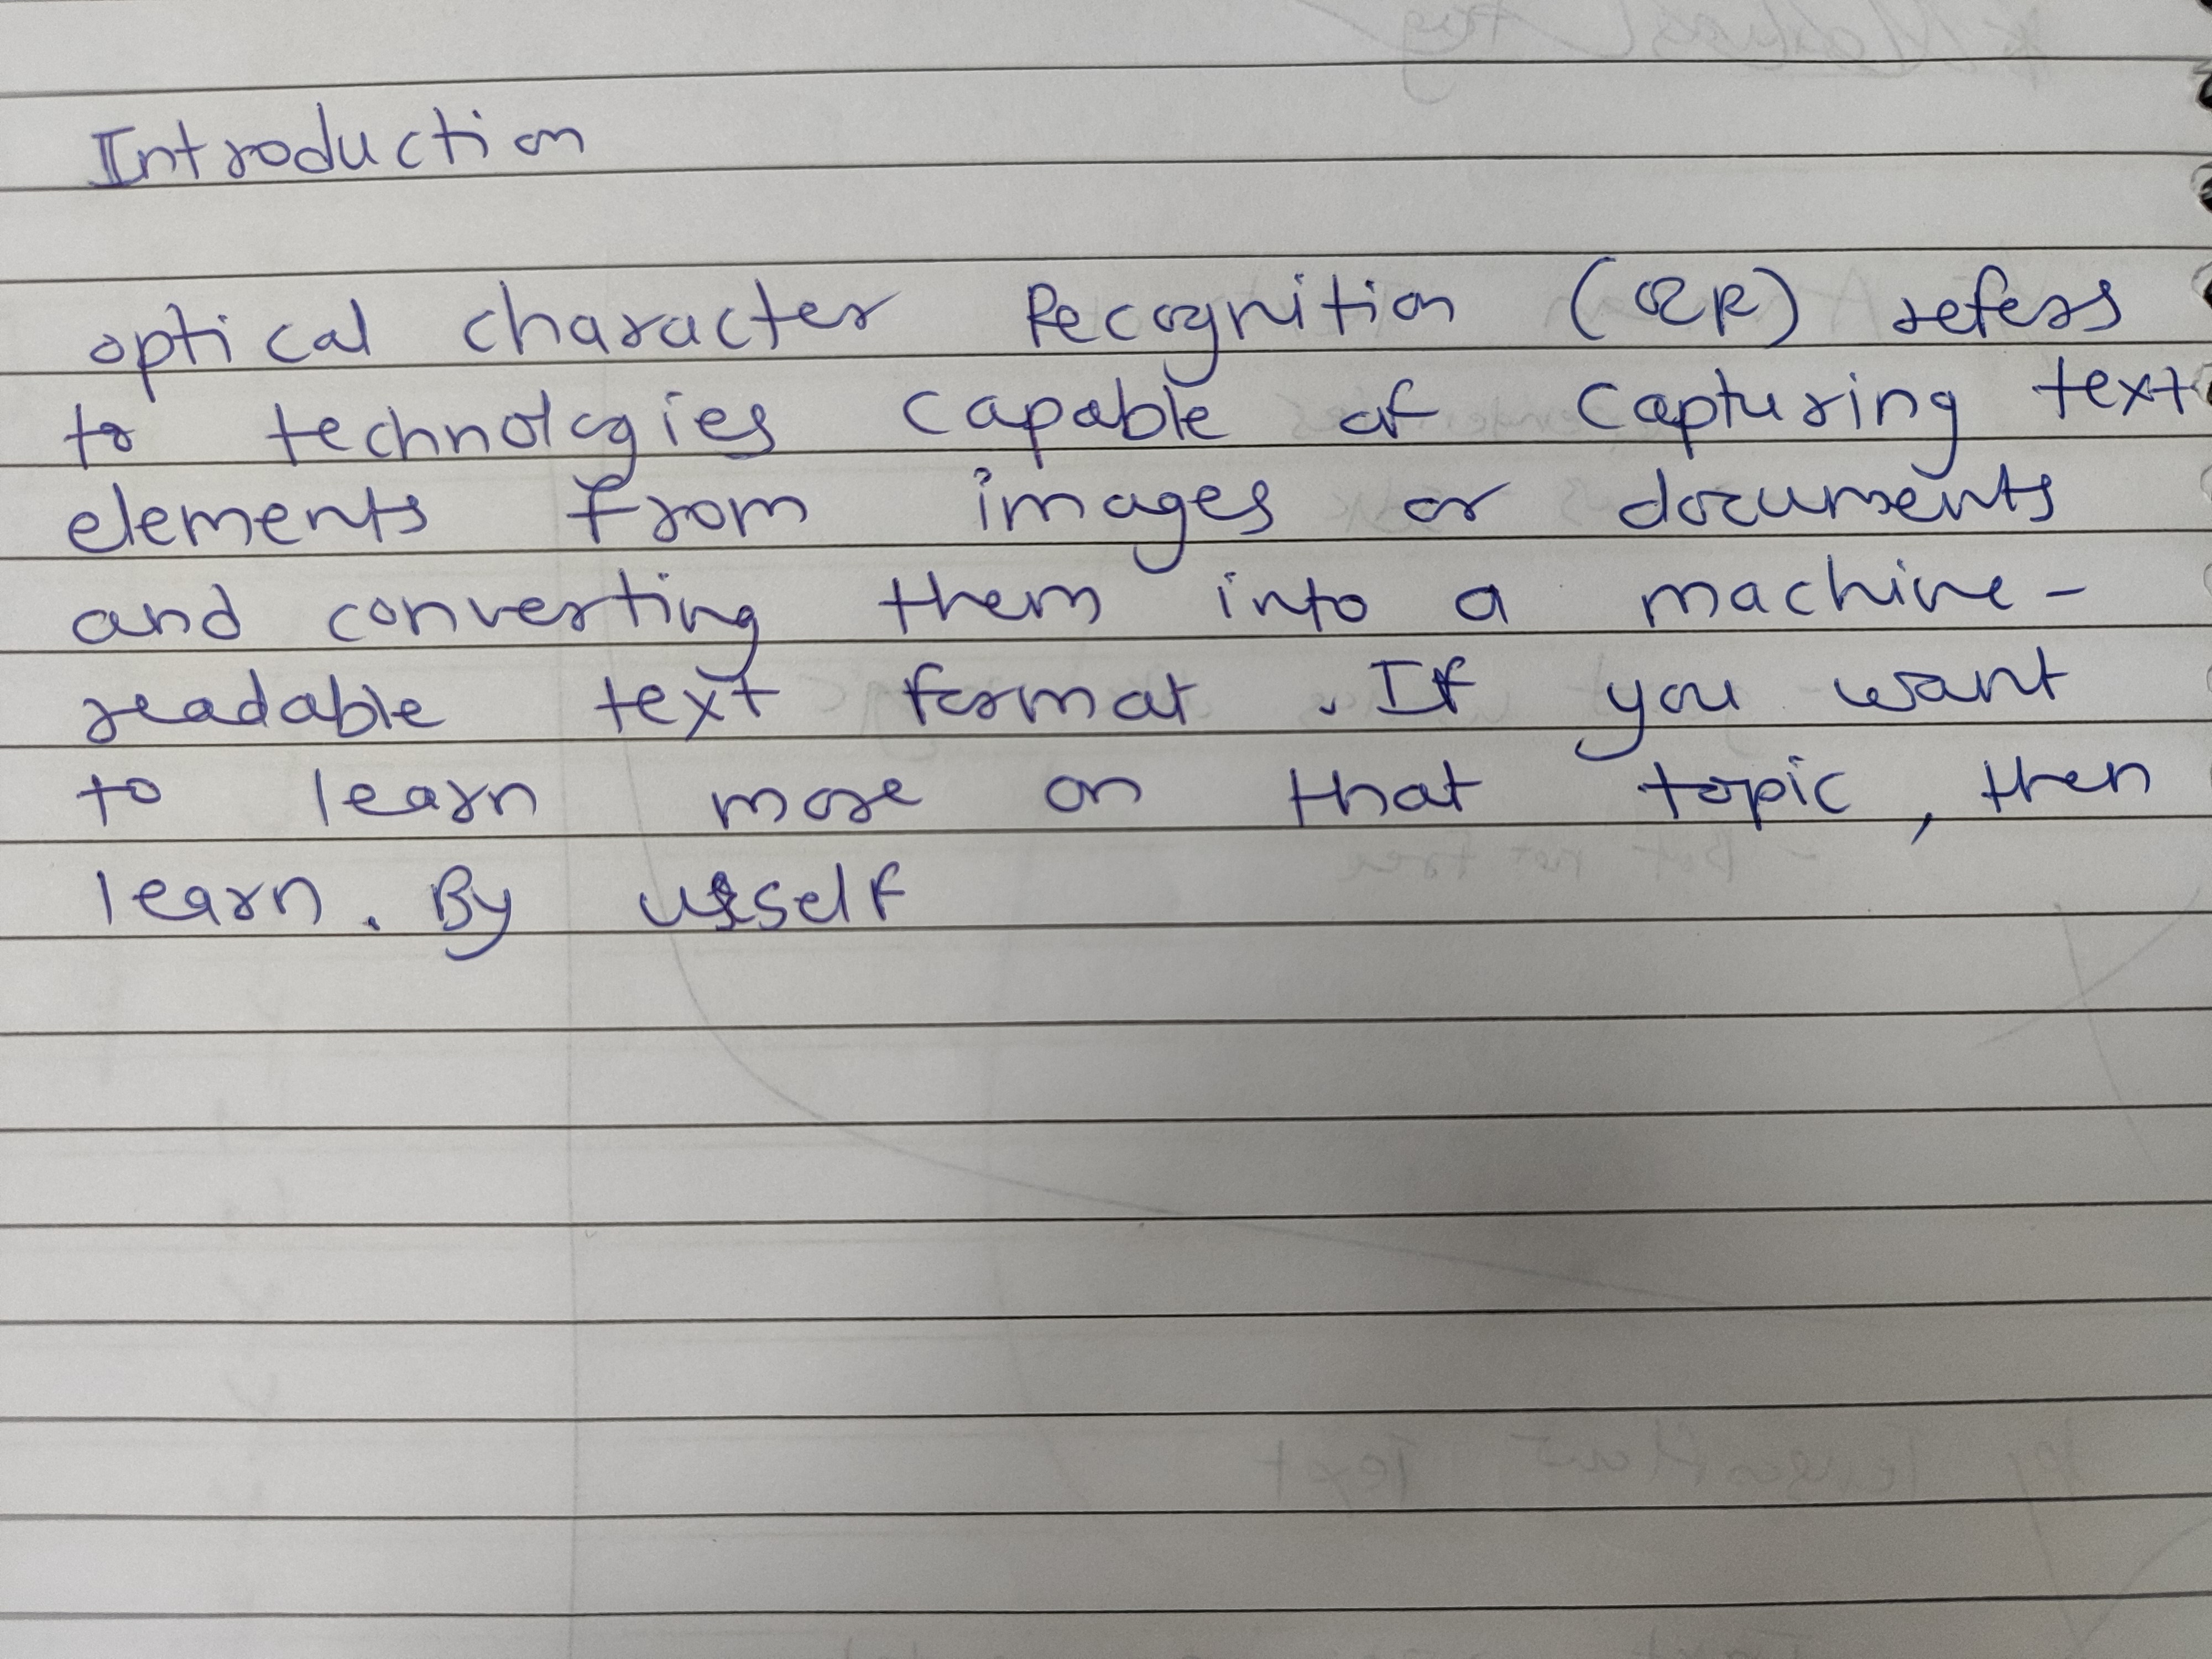 Introduction
optical character Recognition (OCR) refers
to technologies capable of capturing text
elements from images or documents
and converting them into a machine-
readable text format . If you want
to learn more on that topic , then
learn . By